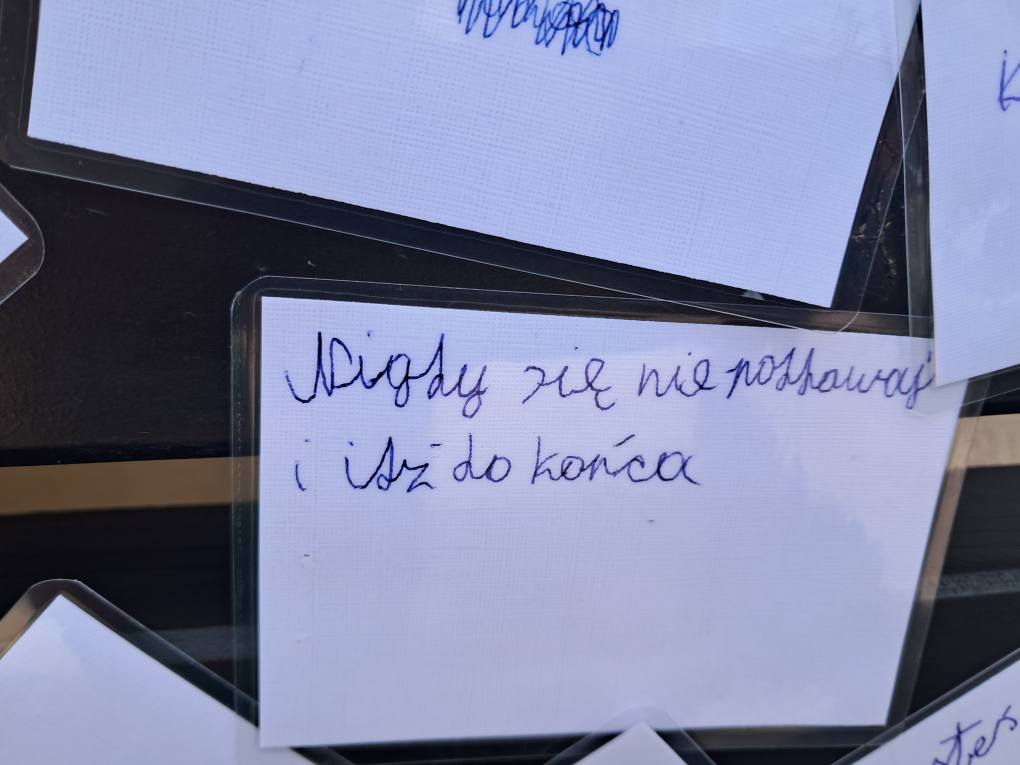 Nigdy się nie poddawaj
i idź do końca